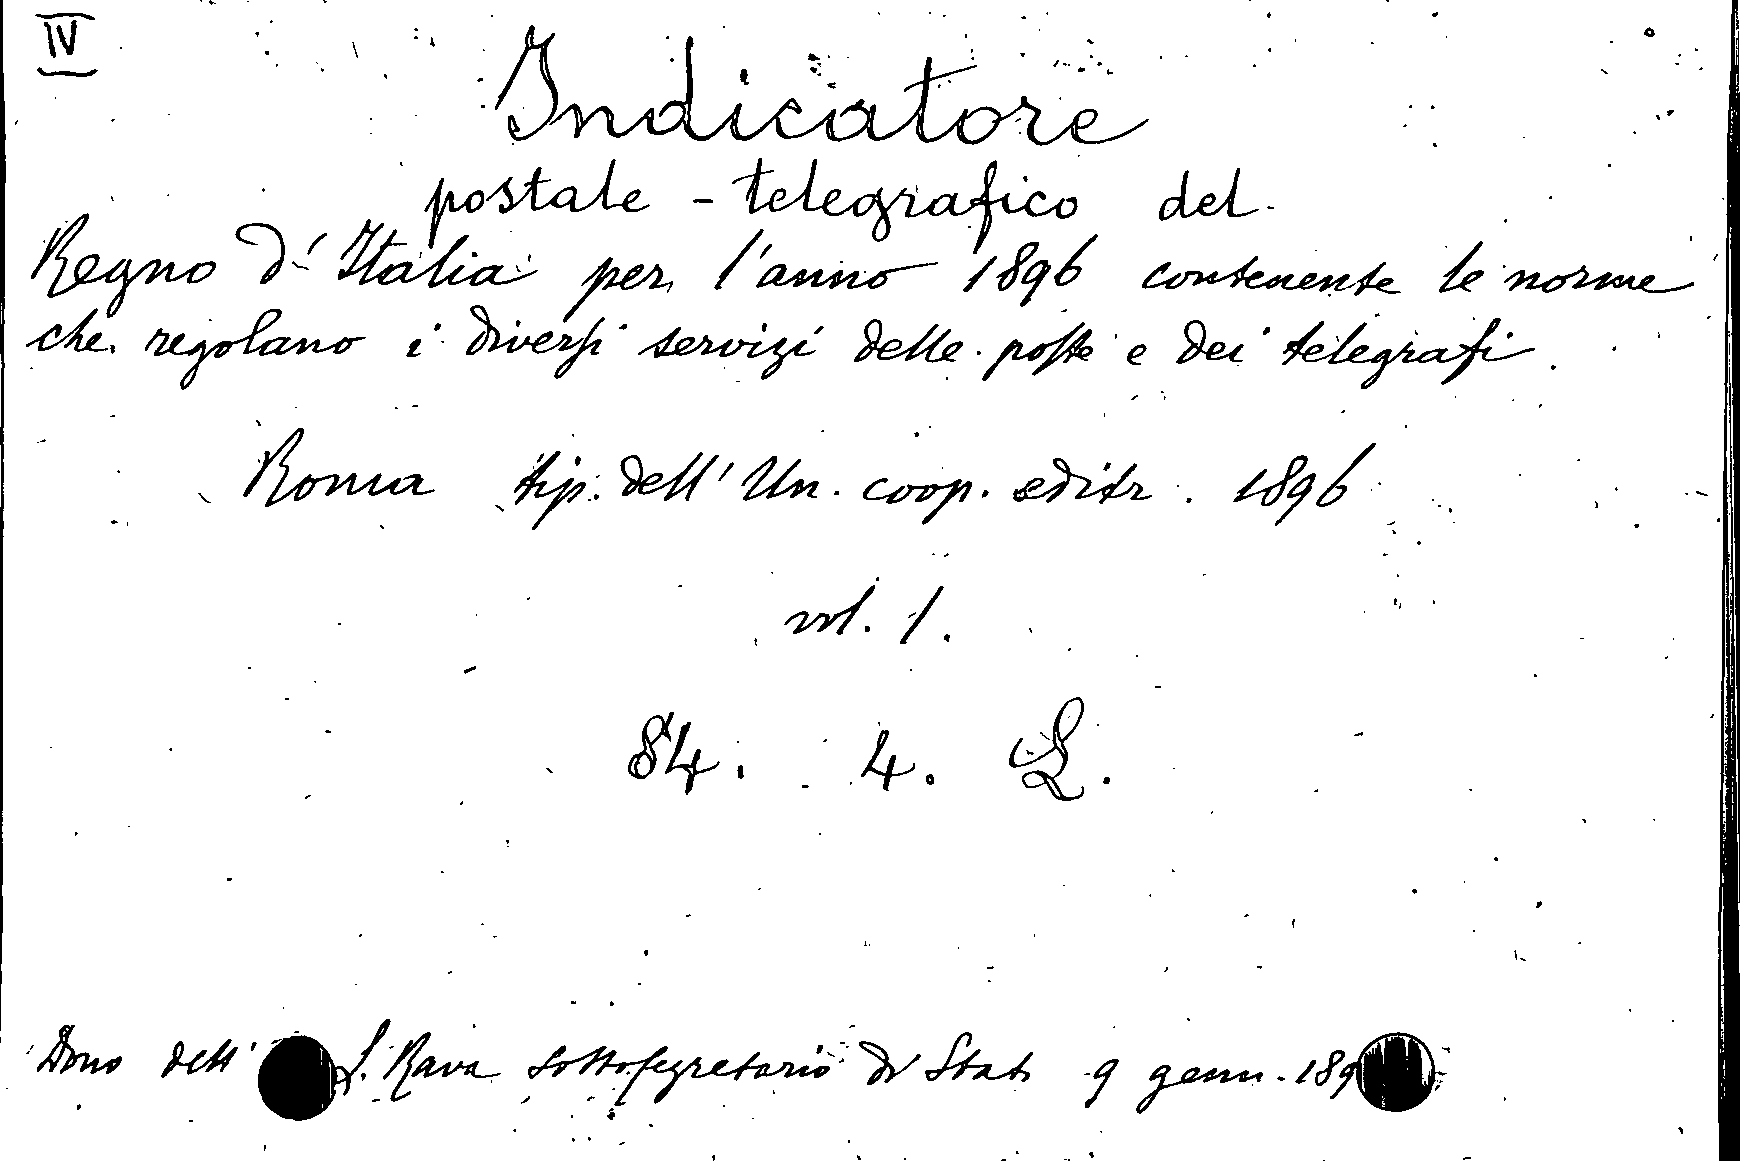 IV
Indicatore
postale - telegrafico del
Regno d'Italia per l'anno 1896 contenente le norme
che regolano i diversi servizi delle poste e dei telegrafi.
Roma tip. dell'Un. coop. editr. 1896
vol. 1.
84. 4. L.
Dono dell' L. Rava sottosegretario di Stato 9 genn. 189